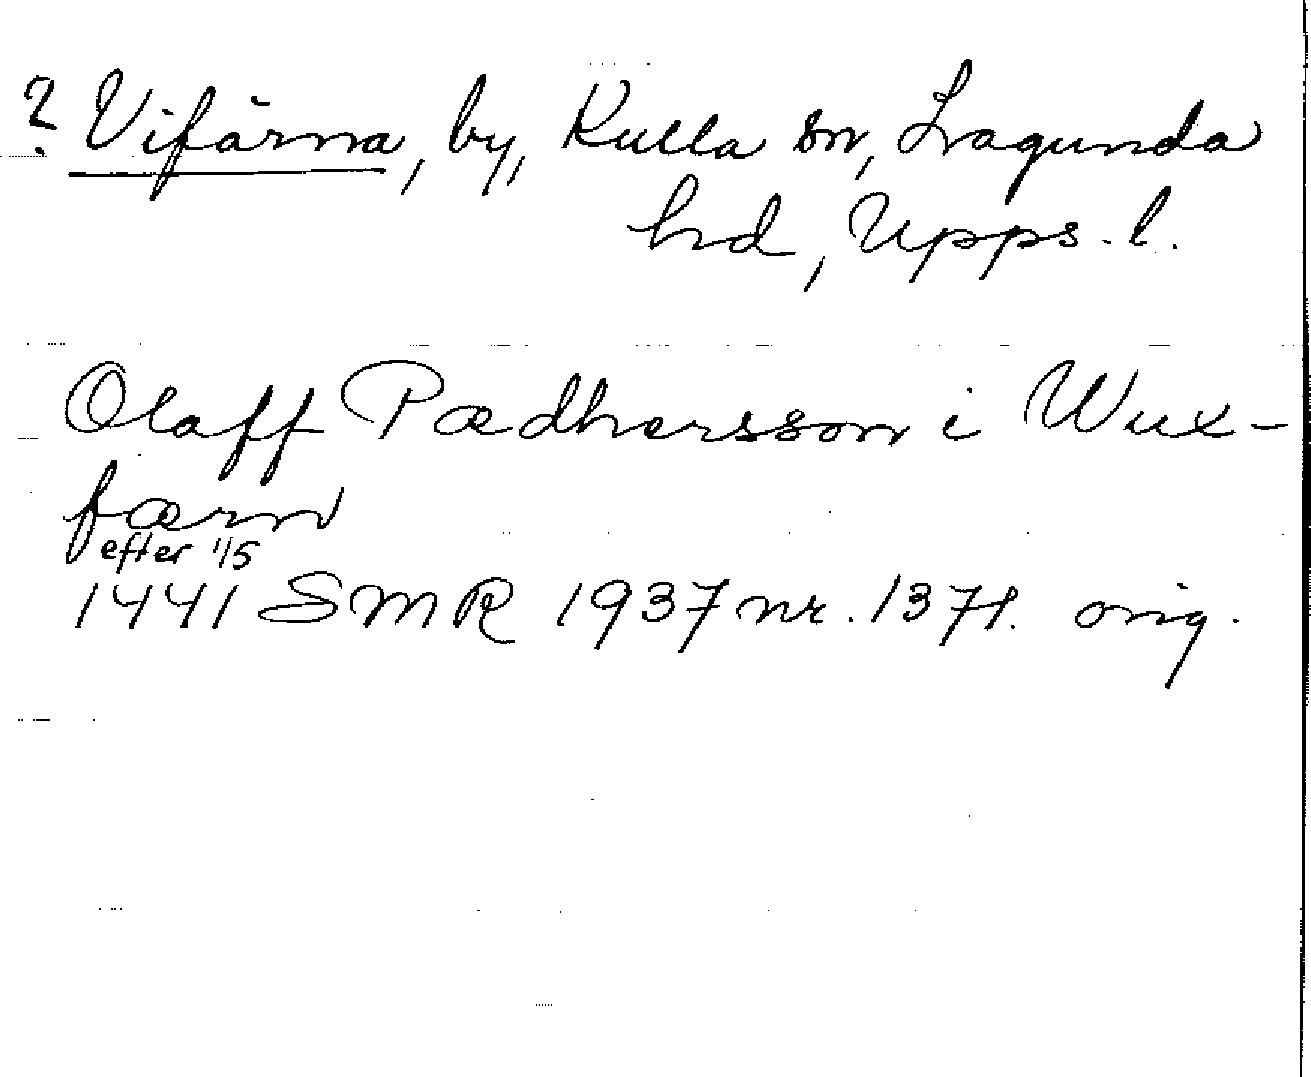 ? Vifärna, by, Kulla sn, Lagunda
hd, Upps. l.
Olaff Pædhersson i Wux-
færn
efter 1/5
1441 SMR 1937 nr. 1371. orig.